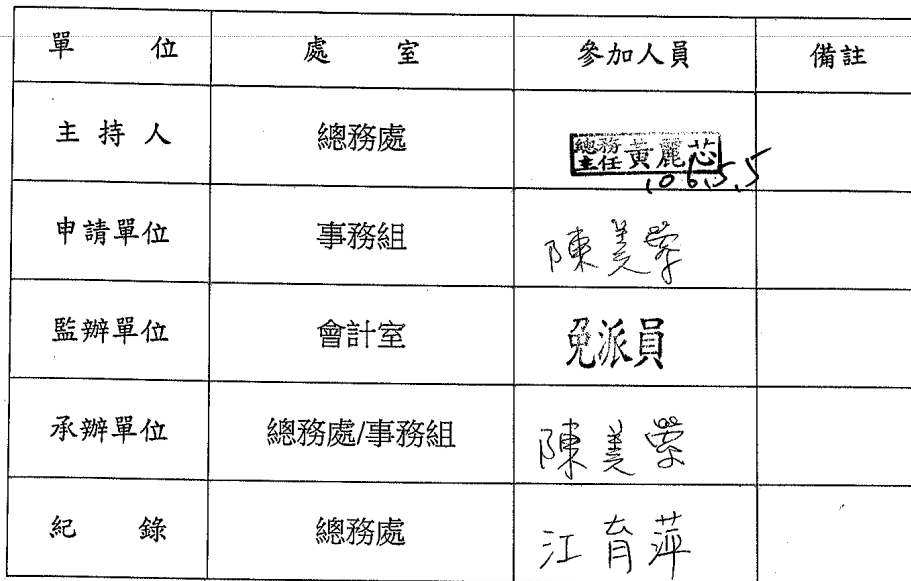 單 位 處 室 參加人員 備註
主 持 人 總務處 總務主任 黃麗芯
106.5.5
申請單位 事務組 陳美縈
監辦單位 會計室 免派員
承辦單位 總務處/事務組 陳美縈
紀 錄 總務處 江育萍